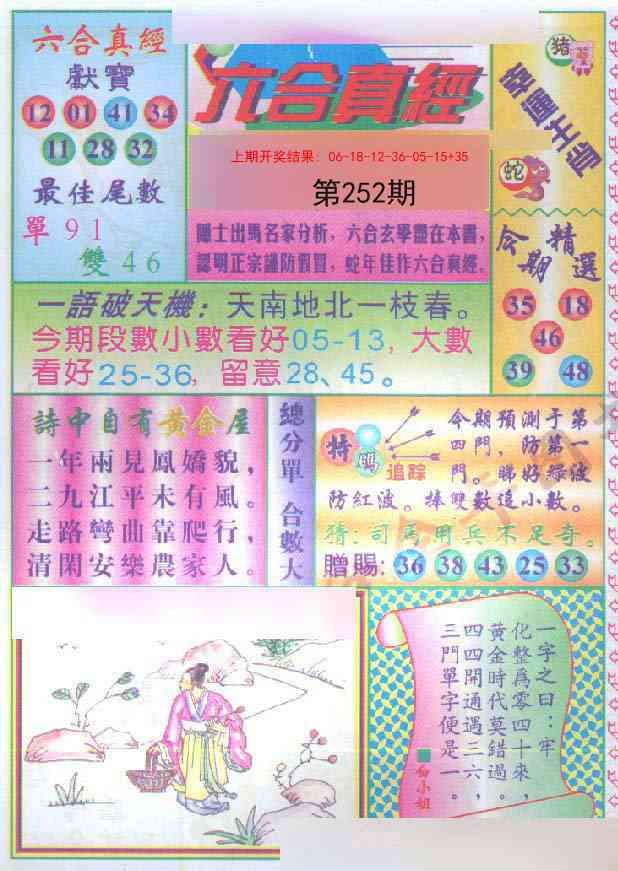 六合真經
獻寶
12 01 41 34
11 28 32
最佳尾數
單91
雙46
六合真經
上期开奖结果：06-18-12-36-05-15+35
第252期
隱士出馬名家分析，六合玄學盡在本書，
認明正宗謹防假冒，蛇年佳作六合真經。
豬
蛇
今期精選
35 18
46
39 48
一語破天機：天南地北一枝春。
今期段數小數看好05-13，大數
看好25-36，留意28、45。
詩中自有黄金屋
一年兩見鳳嬌貌，
二九江平未有風。
走路彎曲靠爬行，
清閑安樂農家人。
總分單 合數大
特碼
追踪
今期預測于第
四門，防第一
門。睇好綠波
防紅波。捧雙數追小數。
猜：司馬用兵不足奇。
贈賜：36 38 43 25 33
一字之曰：牢
化整爲零四十來，
黄金時代莫錯過。
四四開通遇三六，
三門單字便是一。
白小姐